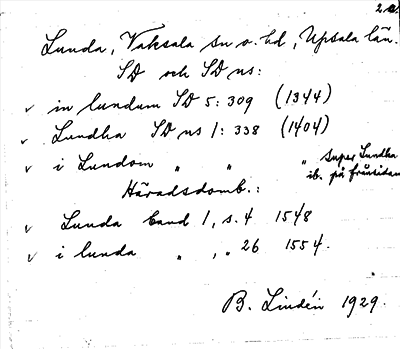 2 a.
Lunda, Vaksala sn o. hd, Upsala län.
SD och SD ns:
v in lundum SD 5: 309 (1344)
v Lundha SD ns 1: 338 (1404)
v i Lundom " " " super Lundha
ib. på frånsidan
Häradsdomb.:
v Lunda band 1, s. 4 1548
v i lunda " , " 26 1554.
B. Lindén 1929.